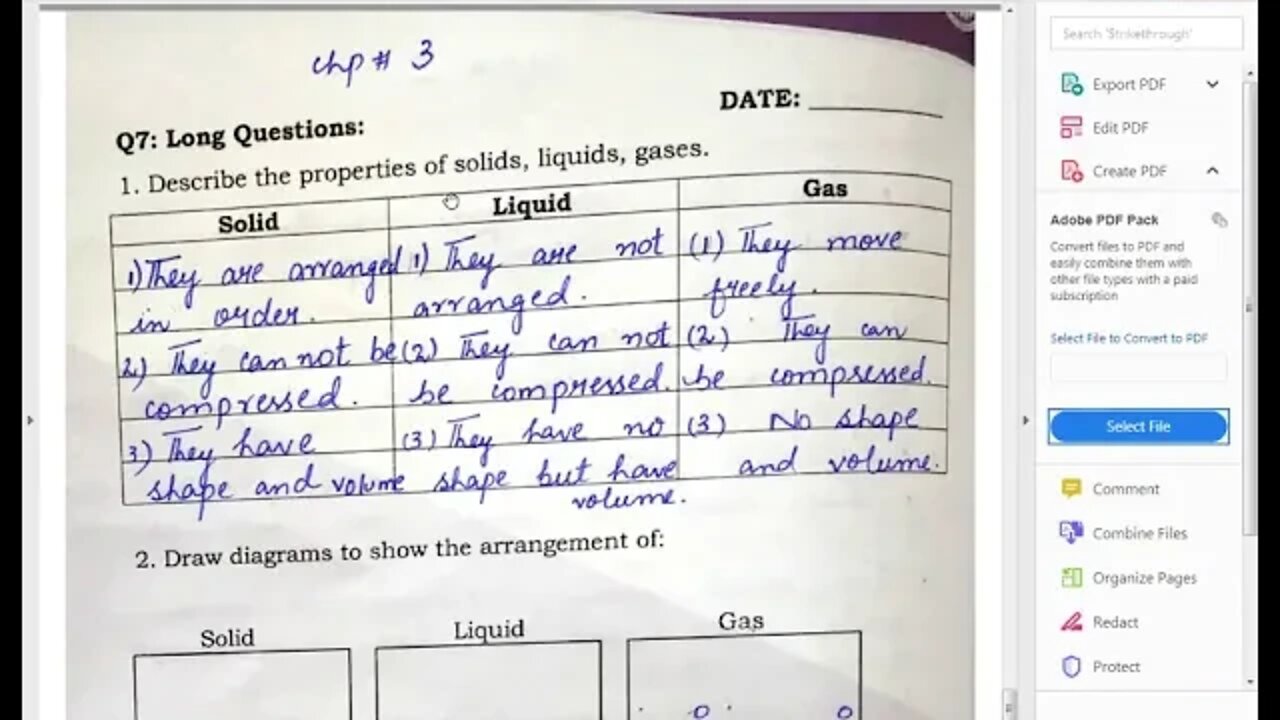 chp # 3
DATE:
Q7: Long Questions:
1. Describe the properties of solids, liquids, gases.
Solid
1) They are arranged
in order.
2) They can not be
compressed.
3) They have
shape and volume
Liquid
1) They are not
arranged.
(2) They can not
be compressed.
(3) They have no
shape but have
volume.
Gas
(1) They move
freely.
(2) They can
be compressed.
(3) No shape
and volume.
2. Draw diagrams to show the arrangement of:
Solid
Liquid
Gas
Search 'Strikethrough'
Export PDF
Edit PDF
Create PDF
Adobe PDF Pack
Convert files to PDF and
easily combine them with
other file types with a paid
subscription
Select File to Convert to PDF
Select File
Comment
Combine Files
Organize Pages
Redact
Protect